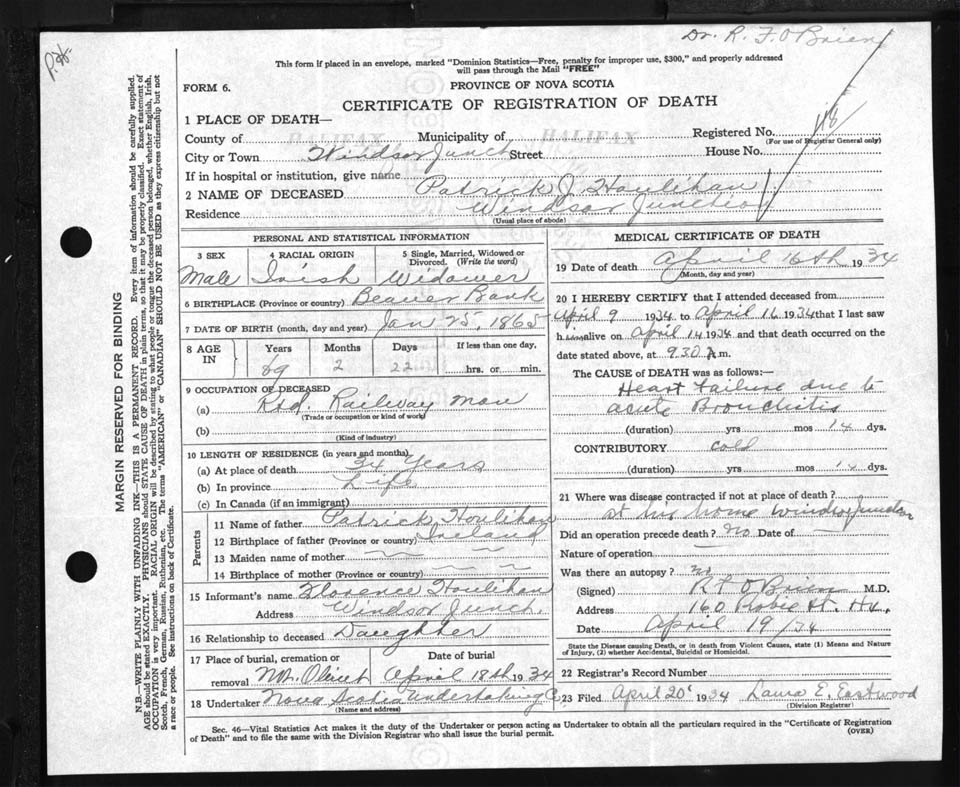 Dr. R. F. O'Brien
This form if placed in an envelope, marked "Dominion Statistics—Free, penalty for improper use, $300," and properly addressed
will pass through the Mail "FREE"
FORM 6.
PROVINCE OF NOVA SCOTIA
CERTIFICATE OF REGISTRATION OF DEATH
1 PLACE OF DEATH—
County of HALIFAX Municipality of HALIFAX Registered No. 118
(For use of Registrar General only)
City or Town Windsor Junch Street House No.
If in hospital or institution, give name
2 NAME OF DECEASED Patrick J. Houlihan
Residence Windsor Junction
(Usual place of abode)
PERSONAL AND STATISTICAL INFORMATION
3 SEX 4 RACIAL ORIGIN 5 Single, Married, Widowed or
Divorced. (Write the word)
Male Irish Widower
6 BIRTHPLACE (Province or country) Beaver Bank
7 DATE OF BIRTH (month, day and year) Jan 25, 1865
8 AGE IN Years Months Days If less than one day,
69 2 22 hrs. or min.
9 OCCUPATION OF DECEASED
(a) Rtd. Railway man
(Trade or occupation or kind of work)
(b)
(Kind of industry)
10 LENGTH OF RESIDENCE (in years and months)
(a) At place of death 34 years
(b) In province Life
(c) In Canada (if an immigrant)
Parents
11 Name of father Patrick Houlihan
12 Birthplace of father (Province or country) Ireland
13 Maiden name of mother
14 Birthplace of mother (Province or country)
15 Informant's name Florence Houlihan
Address Windsor Junch.
16 Relationship to deceased Daughter
17 Place of burial, cremation or Date of burial
removal Mt. Olivet April 18th 1934
18 Undertaker Nova Scotia Undertaking C.
(Name and address)
MEDICAL CERTIFICATE OF DEATH
19 Date of death April 16th 1934
(Month, day and year)
20 I HEREBY CERTIFY that I attended deceased from
April 9 1934 to April 16 1934 that I last saw
h alive on April 14 1934 and that death occurred on the
date stated above, at 9.30 A m.
The CAUSE OF DEATH was as follows:—
Heart Failure due to
acute Bronchitis
(duration) yrs mos 14 dys.
CONTRIBUTORY cold
(duration) yrs mos 14 dys.
21 Where was disease contracted if not at place of death?
at his home Windsor Junction
Did an operation precede death? no Date of
Nature of operation
Was there an autopsy? no
(Signed) R F O'Brien M.D.
Address 160 Robie St. Hx.
Date April 19/34
State the Disease causing Death, or in death from Violent Causes, state (1) Means and Nature
of Injury, (2) whether Accidental, Suicidal or Homicidal.
22 Registrar's Record Number
23 Filed April 20 1934 Laura E. Eastwood
(Division Registrar)
Sec. 46—Vital Statistics Act makes it the duty of the Undertaker or person acting as Undertaker to obtain all the particulars required in the "Certificate of Registration
of Death" and to file the same with the Division Registrar who shall issue the burial permit.
(OVER)
MARGIN RESERVED FOR BINDING
N.B.—WRITE PLAINLY WITH UNFADING INK—THIS IS A PERMANENT RECORD. Every item of information should be carefully supplied.
AGE should be stated EXACTLY. PHYSICIANS should STATE CAUSE OF DEATH in plain terms, so that it may be properly classified. Exact statement of
OCCUPATION is very important. RACIAL ORIGIN will be described by stating to what people or tongue the deceased person belonged, whether English, Irish,
Scotch, French, German, Russian, Ruthenian, etc. The terms "AMERICAN" or "CANADIAN" SHOULD NOT BE USED as they express citizenship but not
a race or people. See instructions on back of Certificate.